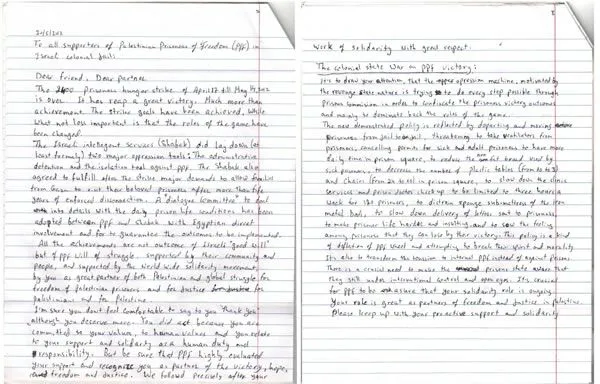 To all supporters of Palestinian Prisoners of Freedom (PPF) in
Israel colonial Jails
Dear friend, Dear partner
The 2400 prisoners hunger strike of April 17 till May 14, 2012
is over. It has reap a great victory. Much more than
achievement. The strike goals have been achieved, while
what not less important is that the roles of the game have
been changed.
The Israeli intelligent services (Shabak) did lay down (at
least formely) two major oppression tools: The administrative
detention and the isolation tool against PPF. The Shabak also
agreed to fulfill other strike major demands to allow families
from Gaza to visit their beloved prisoners after more than five
years of enforced disconnection. A dialogue committee to deal
into details with the daily prison life conditions has been
adopted between PPF and Shabak with Egyptian direct
involvement and for to guarantee the outcomes to be implemented.
All the achievements are not outcome of Israel's "good will"
but of PPF will of struggle. supported by their community and
people, and supported by the world wide solidarity movement,
by you as great partner of both Palestinian and global struggle for
freedom of Palestinian prisoners and for justice
palestinians and for Palestine.
I'm sure you don't feel comfortable to say to you "Thank you"
although you deserve more. You did act because you are
committed to your values, to human values and you relate
to your support and solidarity as a human duty and
responsibility. But be sure that PPF highly evaluated
your support and recognize you as partner of the victory, hope,
freedom and Justice. We followed precisely after your
work of solidarity with great respect.
The colonial state War on PPF victory:
It's to draw your attention, that the oppression machine, motivated by
the revenge state nature is trying to do every step possible through
prisons commission in order to confiscate the prisoners victory outcomes
and mainly to dominate back the roles of the game.
The new demonstrated policy is reflected by deporting and moving
prisoners from jail to jail, threatening to take ventilators from
prisoners, cancelling permits for sick and adult prisoners to have more
daily time in prison square, to reduce the bread used by
sick prisoners, to decrease the number of plastic tables (from 10 to 3)
and chairs (from 20 to 10) in prison square, to slow down the clinic
services and prison doctor check up to be limited to three hours a
week for 120 prisoners, to distrain sponge submattress of the iron
metal beds, to slow down delivery of letters sent to prisoners,
to make prisoner life harder and insulting and to sow the feeling
among prisoners that they can lose by their victory. This policy is a kind
of deflation of PPF wheel and attempting to break their spirit and morality
It's also to transform the tension to internal PPF instead of against prisons.
There is a crucial need to make the prisons state aware that
they still under international control and open eyes. It's crucial
for PPF to be assure that your solidarity role is ongoing
Your role is great as partners of freedom and Justice in Palestine
Please keep up with your proactive support and solidarity